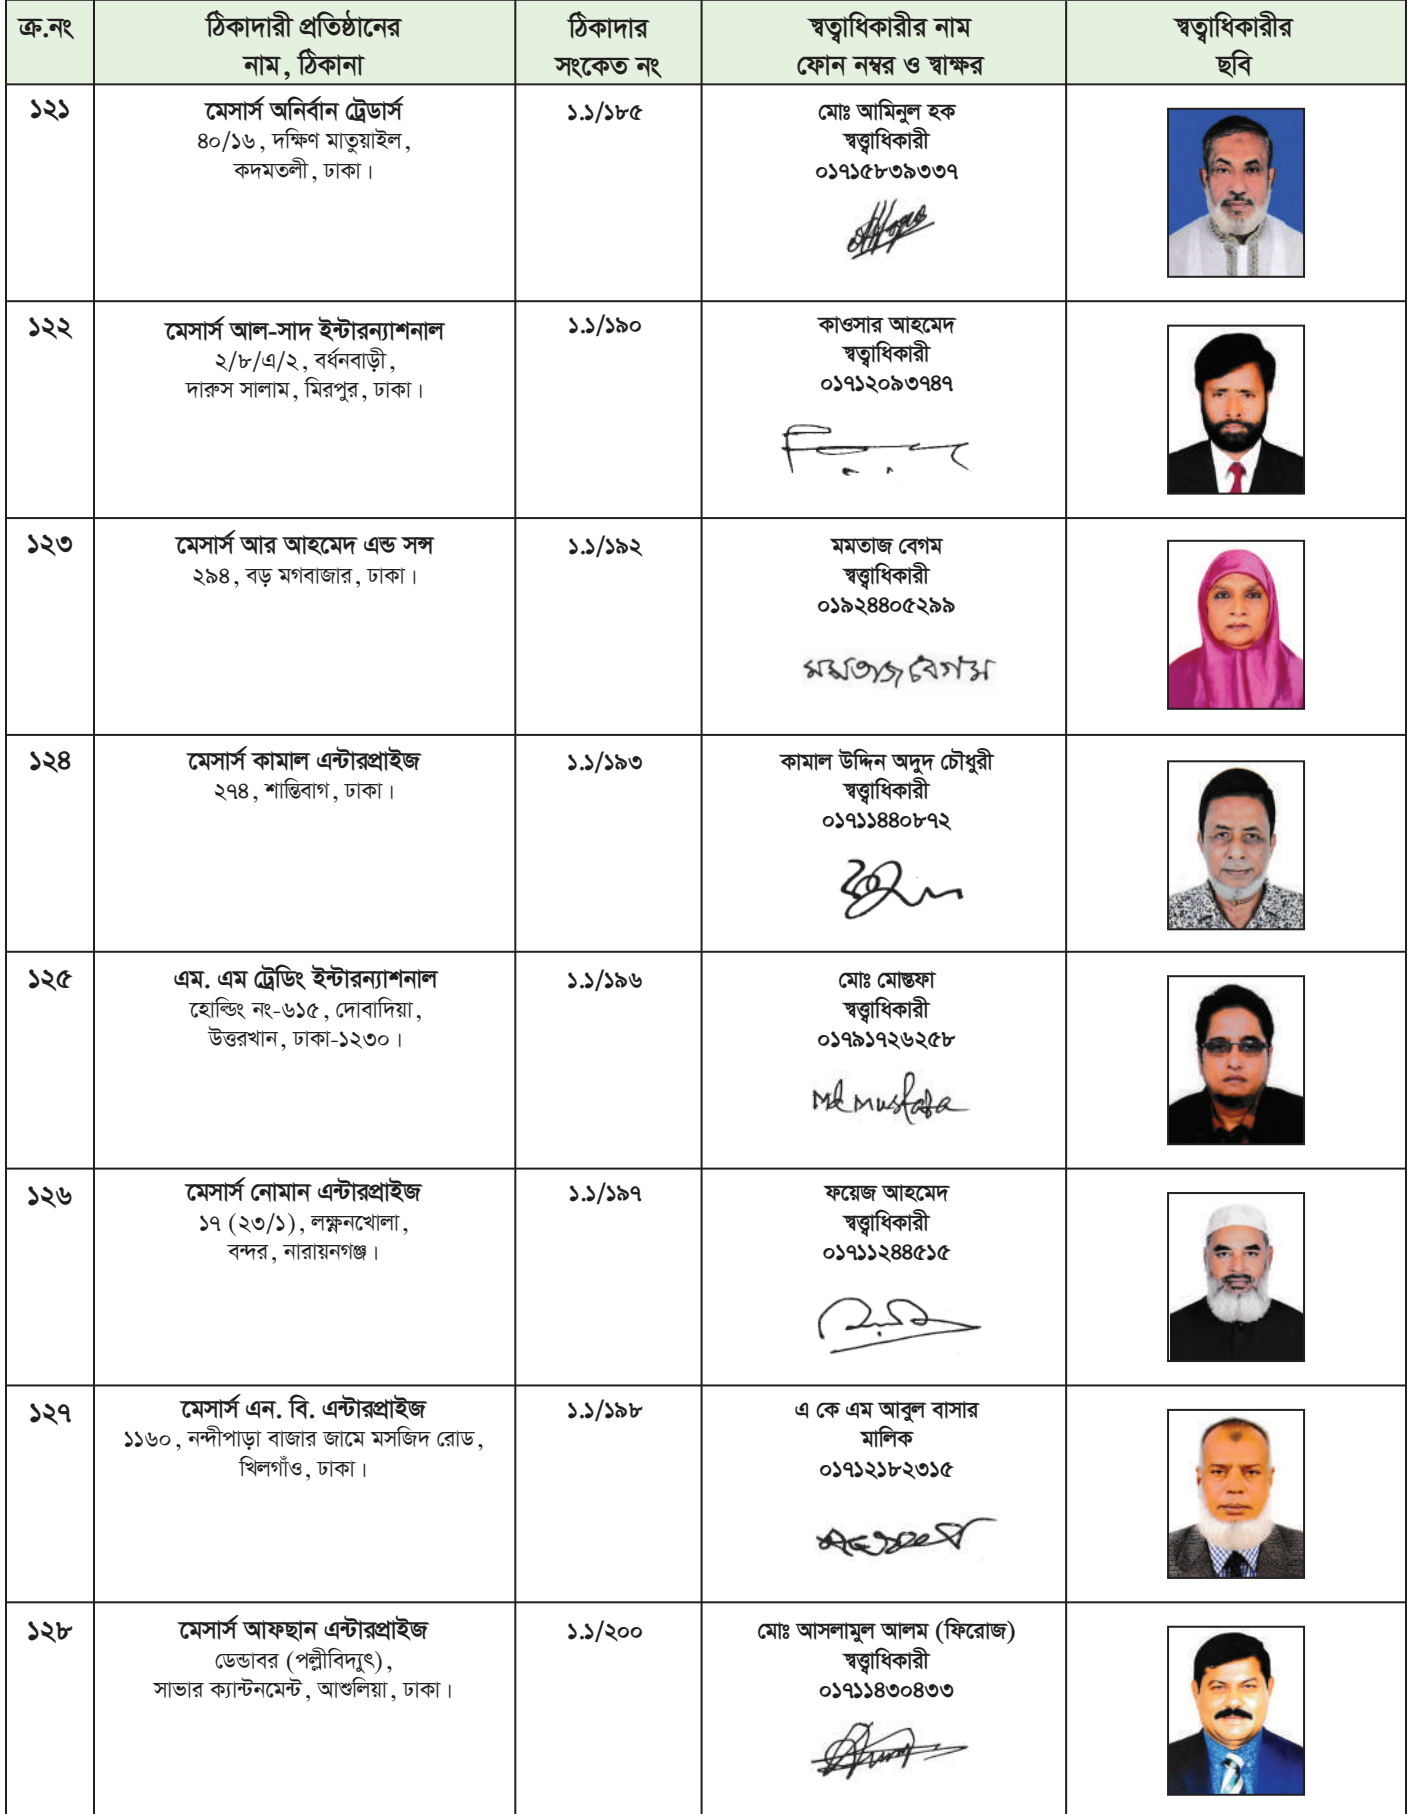 ক্র.নং
ঠিকাদারী প্রতিষ্ঠানের
নাম, ঠিকানা
ঠিকাদার
সংকেত নং
স্বত্বাধিকারীর নাম
ফোন নম্বর ও স্বাক্ষর
স্বত্বাধিকারীর
ছবি
১২১
মেসার্স অনির্বান ট্রেডার্স
৪০/১৬, দক্ষিণ মাতুয়াইল,
কদমতলী, ঢাকা।
১.১/১৮৫
মোঃ আমিনুল হক
স্বত্ত্বাধিকারী
০১৭১৫৮৩৯৩৩৭
১২২
মেসার্স আল-সাদ ইন্টারন্যাশনাল
২/৮/এ/২, বর্ধনবাড়ী,
দারুস সালাম, মিরপুর, ঢাকা।
১.১/১৯০
কাওসার আহমেদ
স্বত্বাধিকারী
০১৭১২০৯৩৭৪৭
১২৩
মেসার্স আর আহমেদ এন্ড সন্স
২৯৪, বড় মগবাজার, ঢাকা।
১.১/১৯২
মমতাজ বেগম
স্বত্ত্বাধিকারী
০১৯২৪৪০৫২৯৯
মমতাজ বেগম
১২৪
মেসার্স কামাল এন্টারপ্রাইজ
২৭৪, শান্তিবাগ, ঢাকা।
১.১/১৯৩
কামাল উদ্দিন অদুদ চৌধুরী
স্বত্ত্বাধিকারী
০১৭১১৪৪০৮৭২
১২৫
এম. এম ট্রেডিং ইন্টারন্যাশনাল
হোল্ডিং নং-৬১৫, দোবাদিয়া,
উত্তরখান, ঢাকা-১২৩০।
১.১/১৯৬
মোঃ মোস্তফা
স্বত্ত্বাধিকারী
০১৭৯১৭২৬২৫৮
Md Mustafa
১২৬
মেসার্স নোমান এন্টারপ্রাইজ
১৭ (২৩/১), লক্ষ্ণনখোলা,
বন্দর, নারায়নগঞ্জ।
১.১/১৯৭
ফয়েজ আহমেদ
স্বত্ত্বাধিকারী
০১৭১১২৪৪৫১৫
১২৭
মেসার্স এন. বি. এন্টারপ্রাইজ
১১৬০, নন্দীপাড়া বাজার জামে মসজিদ রোড,
খিলগাঁও, ঢাকা।
১.১/১৯৮
এ কে এম আবুল বাসার
মালিক
০১৭১২১৮২৩১৫
১২৮
মেসার্স আফছান এন্টারপ্রাইজ
ডেন্ডাবর (পল্লীবিদ্যুৎ),
সাভার ক্যান্টনমেন্ট, আশুলিয়া, ঢাকা।
১.১/২০০
মোঃ আসলামুল আলম (ফিরোজ)
স্বত্ত্বাধিকারী
০১৭১১৪৩০৪৩৩